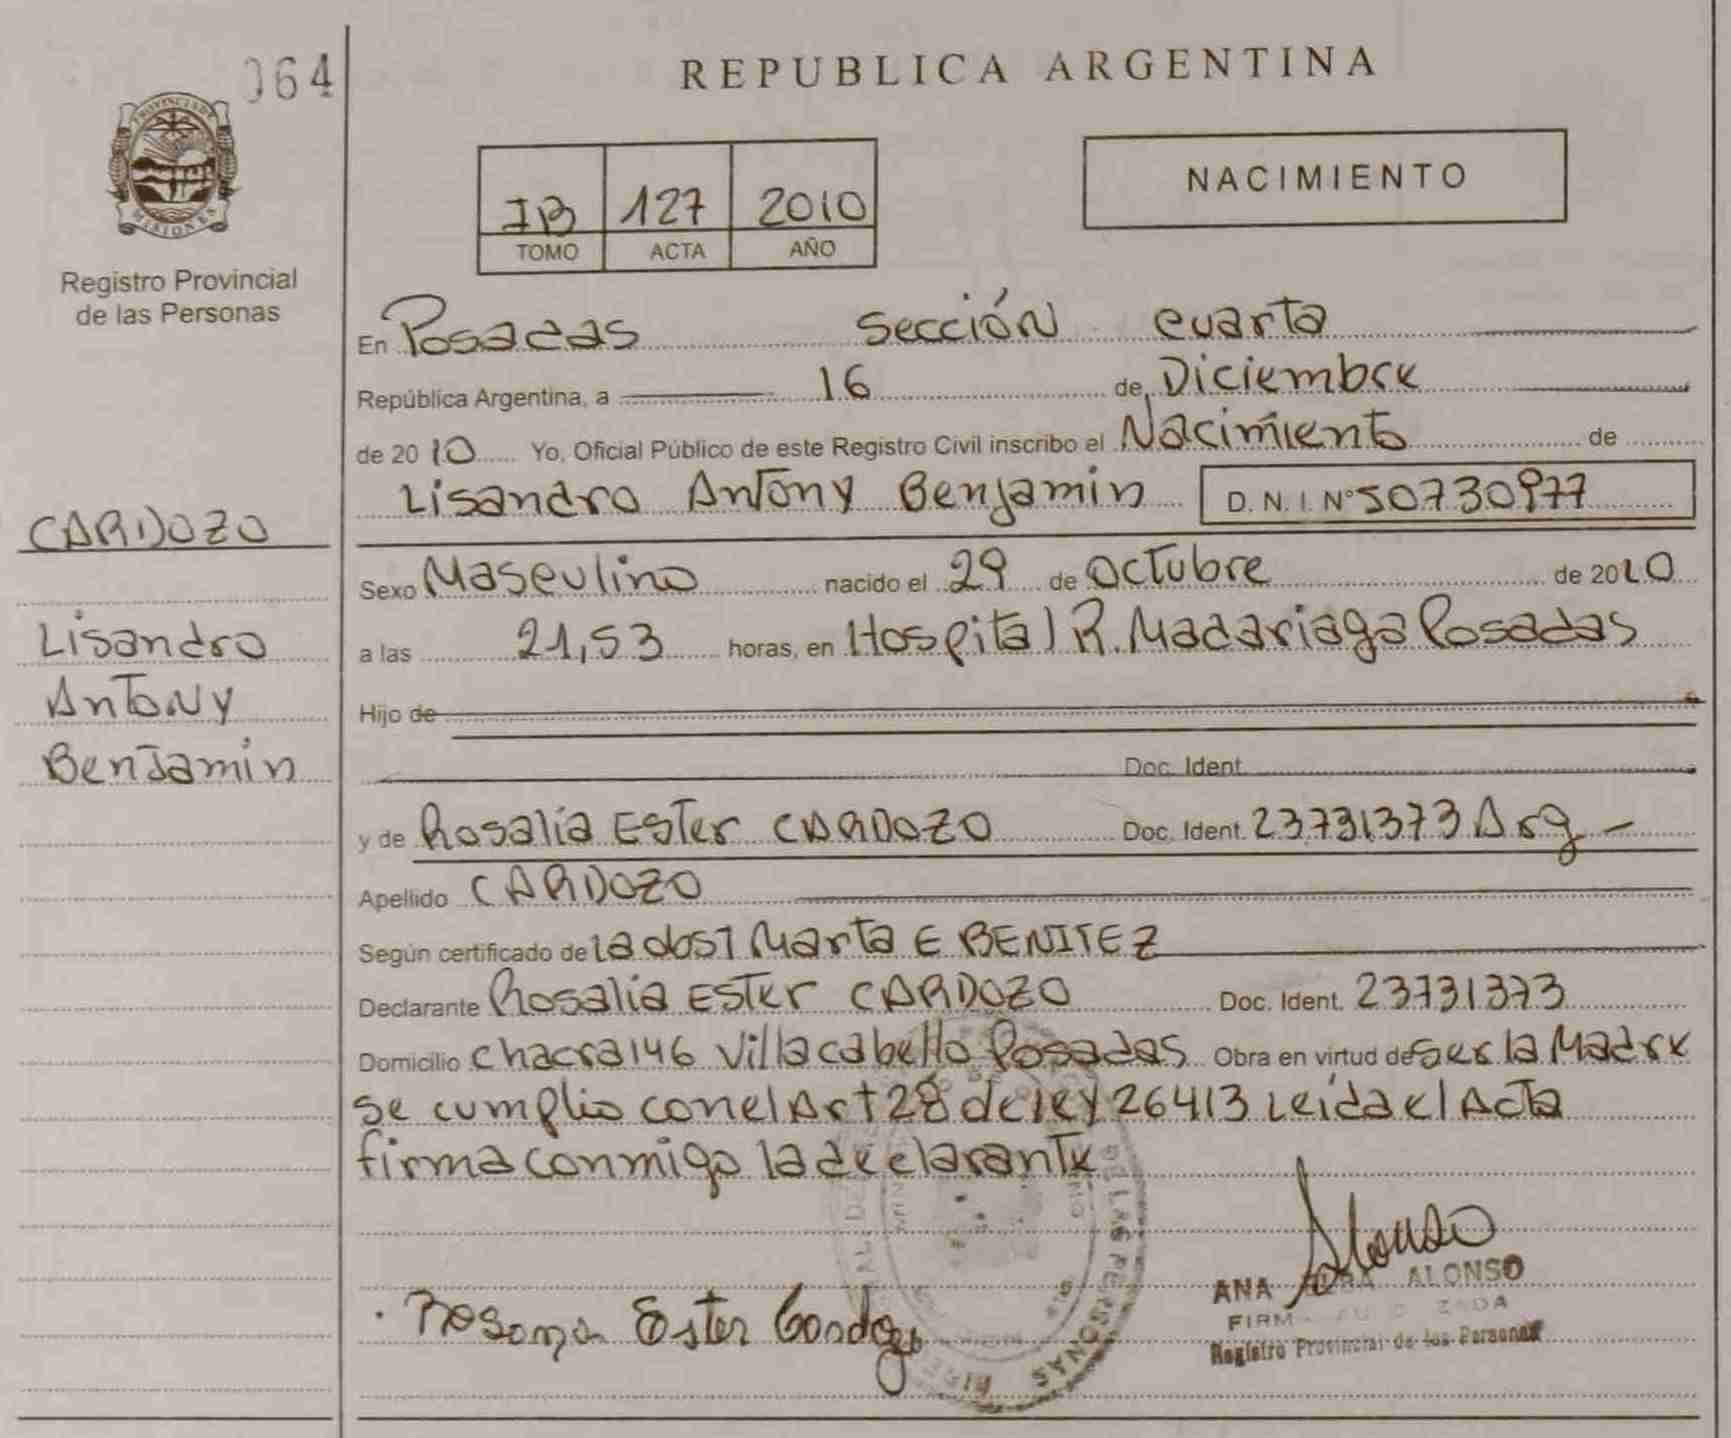 064
REPUBLICA ARGENTINA
PROVINCIA DE
MISIONES
Registro Provincial
de las Personas
IB 127 2010
TOMO ACTA AÑO
NACIMIENTO
En Posadas Sección cuarta
República Argentina, a 16 de Diciembre
de 2010 Yo, Oficial Público de este Registro Civil inscribo el Nacimiento de
Lisandro Antony Benjamin D.N.I. Nº 50730977
CARDOZO
Lisandro
Antony
Benjamin
Sexo Masculino nacido el 29 de Octubre de 2010
a las 21,53 horas, en Hospital R. Madariaga Posadas
Hijo de
Doc. Ident.
y de Rosalia Ester CARDOZO Doc. Ident. 23731373 Arg -
Apellido CARDOZO
Según certificado de la obst Marta E BENITEZ
Declarante Rosalia Ester CARDOZO Doc. Ident. 23731373
Domicilio chacra 146 Villa cabello Posadas Obra en virtud de ser la Madre
se cumplio con el Art 28 de ley 26413 Leida el Acta
firma conmigo la declarante
Ester Cardozo
Alonso
ANA ALONSO
Registro Provincial de las Personas
DE LAS PERSONAS